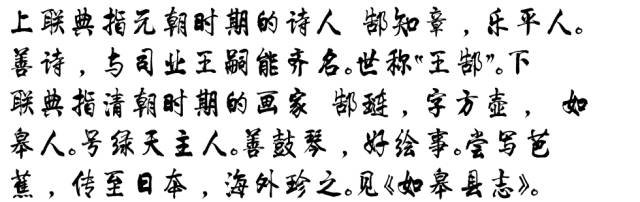 上联典指元朝时期的诗人 郜知章，乐平人。
善诗，与司业王嗣能齐名。世称“王郜”。下
联典指清朝时期的画家 郜琏，字方壶， 如
皋人。号绿天主人。善鼓琴，好绘事。尝写芭
蕉，传至日本，海外珍之。见《如皋县志》。